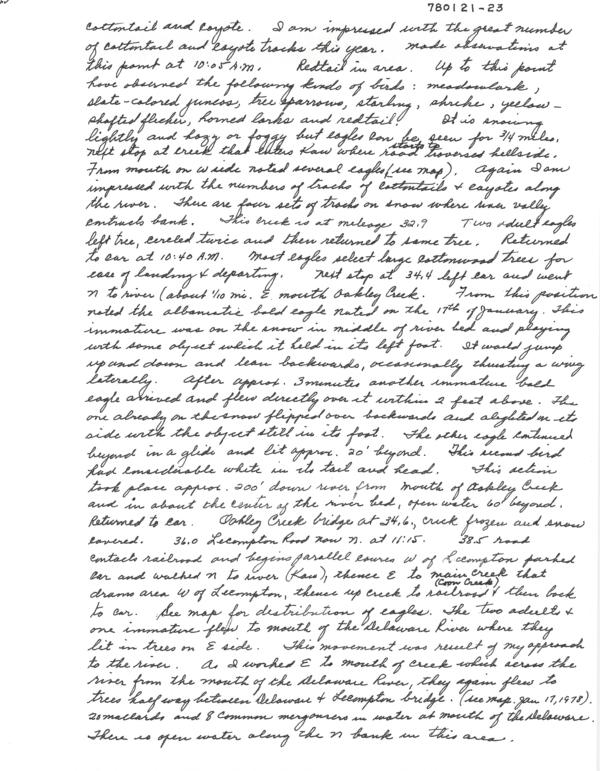 780121-23
cottontail and coyote. I am impressed with the great number
of cottontail and coyote tracks this year. Made observations at
this point at 10:05 A.M. Redtail in area. Up to this point
have observed the following kinds of birds: meadowlark,
slate-colored juncos, tree sparrows, starling, shrike, yellow-
shafted flicker, horned larks and redtail. It is snowing
lightly and hazy or foggy but eagles can be seen for 3/4 miles.
Next stop at creek that enters Kaw where road starts to traverses hillside.
From mouth on W side noted several eagles (see map). Again I am
impressed with the numbers of tracks of cottontails & coyotes along
the river. There are four sets of tracks on snow where river vally
contracts bank. This creek is at mileage 32.9 Two adult eagles
left tree, circled twice and then returned to same tree. Returned
to car at 10:40 A.M. Most eagles select large cottonwood trees for
ease of landing & departing. Next stop at 34.4 left car and went
N to river (about 1/10 mi. E mouth Oakley Creek. From this position
noted the albanistic bald eagle noted on the 17th of January. This
immature was on the snow in middle of river bed and playing
with some object which it held in its left foot. It would jump
up and down and lean backwards, occasionally thrusting a wing
laterally. After approx. 3 minutes another immature bald
eagle arrived and flew directly over it within 2 feet above. The
one already on the snow flipped over backwards and alighted on its
side with the object still in its foot. The other eagle continued
beyond in a glide and lit approx. 20' beyond. This second bird
had considerable white in its tail and head. This action
took place approx. 200' down river from mouth of Oakley Creek
and in about the center of the river bed, open water 60' beyond.
Returned to car. Oakley Creek bridge at 34.6, creek frozen and snow
covered. 36.0 Lecompton Road now N. at 11:15. 38.5 road
contacts railroad and begins parallel course W of Lecompton parked
car and walked N to river (Kaw), thence E to main creek (Coon Creek) that
drains area W of Lecompton, thence up creek to railroad & then back
to car. See map for distribution of eagles. The two adults &
one immature flew to mouth of the Delaware River where they
lit in trees on E side. This movement was result of my approach
to the river. As I worked E to mouth of creek which across the
river from the mouth of the Delaware River, they again flew to
trees half way between Delaware & Lecompton bridge. (see map Jan 17, 1978).
20 mallards and 8 common mergansers in water at mouth of the Delaware.
There is open water along the N bank in this area.